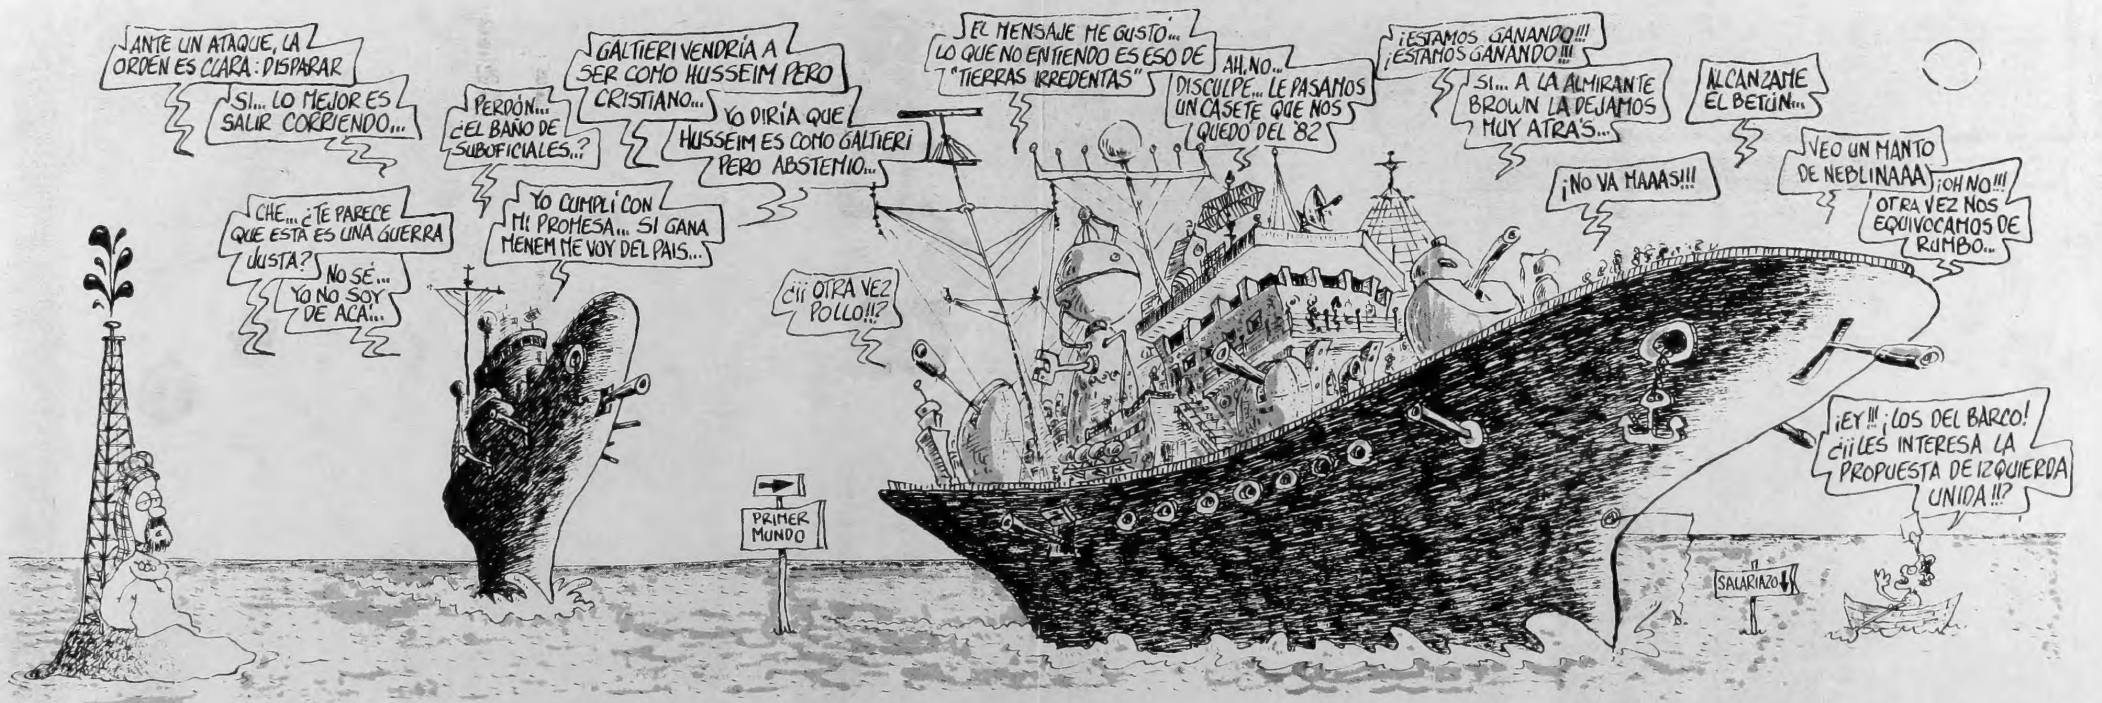 ANTE UN ATAQUE, LA
ORDEN ES CLARA: DISPARAR
SI... LO MEJOR ES
SALIR CORRIENDO...
CHE... ¿TE PARECE
QUE ESTA ES UNA GUERRA
JUSTA?
NO SÉ...
YO NO SOY
DE ACÁ...
PERDÓN...
¿EL BAÑO DE
SUBOFICIALES..?
GALTIERI VENDRÍA A
SER COMO HUSSEIM PERO
CRISTIANO...
YO DIRÍA QUE
HUSSEIM ES COMO GALTIERI
PERO ABSTEMIO...
YO CUMPLÍ CON
MI PROMESA... SI GANA
MENEM ME VOY DEL PAIS...
¿¡¡ OTRA VEZ
POLLO!!?
EL MENSAJE ME GUSTÓ...
LO QUE NO ENTIENDO ES ESO DE
"TIERRAS IRREDENTAS"
AH, NO...
DISCULPE... LE PASAMOS
UN CASETE QUE NOS
QUEDÓ DEL '82
¡ESTAMOS GANANDO!!!
¡ESTAMOS GANANDO!!!
SI... A LA ALMIRANTE
BROWN LA DEJAMOS
MUY ATRÁS...
¡NO VA MAAAS!!!
ALCANZAME
EL BETÚN...
VEO UN MANTO
DE NEBLINAAA
¡OH NO!!!
OTRA VEZ NOS
EQUIVOCAMOS DE
RUMBO...
¡EY!!! ¡LOS DEL BARCO!
¿¡¡LES INTERESA LA
PROPUESTA DE IZQUIERDA
UNIDA!!?
PRIMER
MUNDO
SALARIAZO